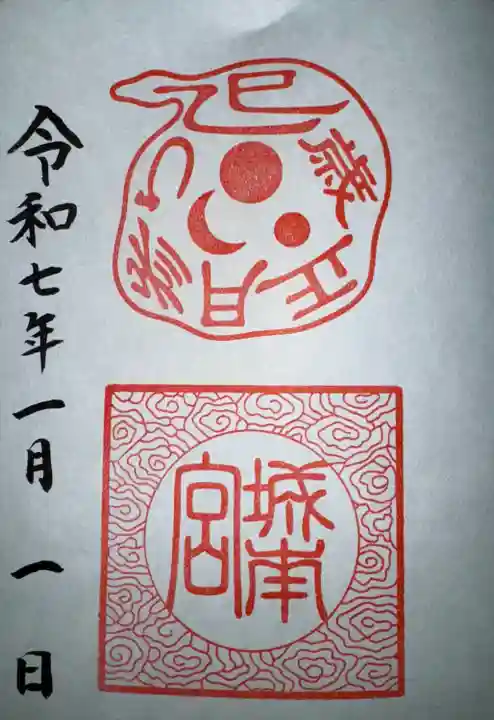 巳歳正月参り
城南
宮
令和七年一月一日